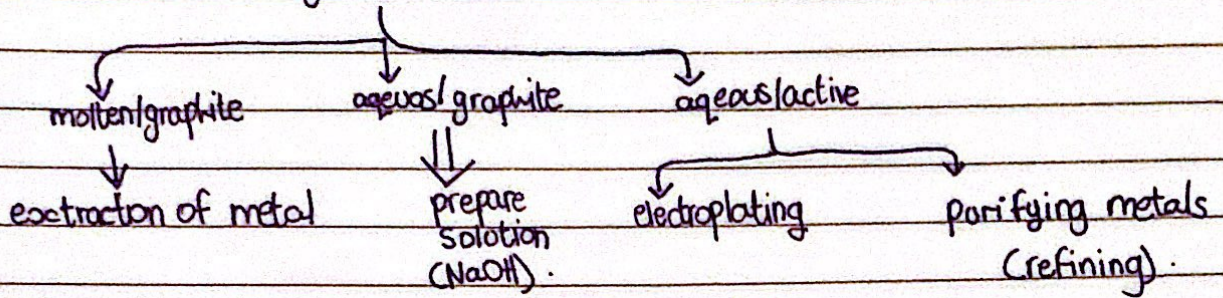 molten/graphite
aqeuos/ graphite
aqeous/active
exctraction of metal
prepare
solotion
(NaOH).
electroplating
porifying metals
(refining).